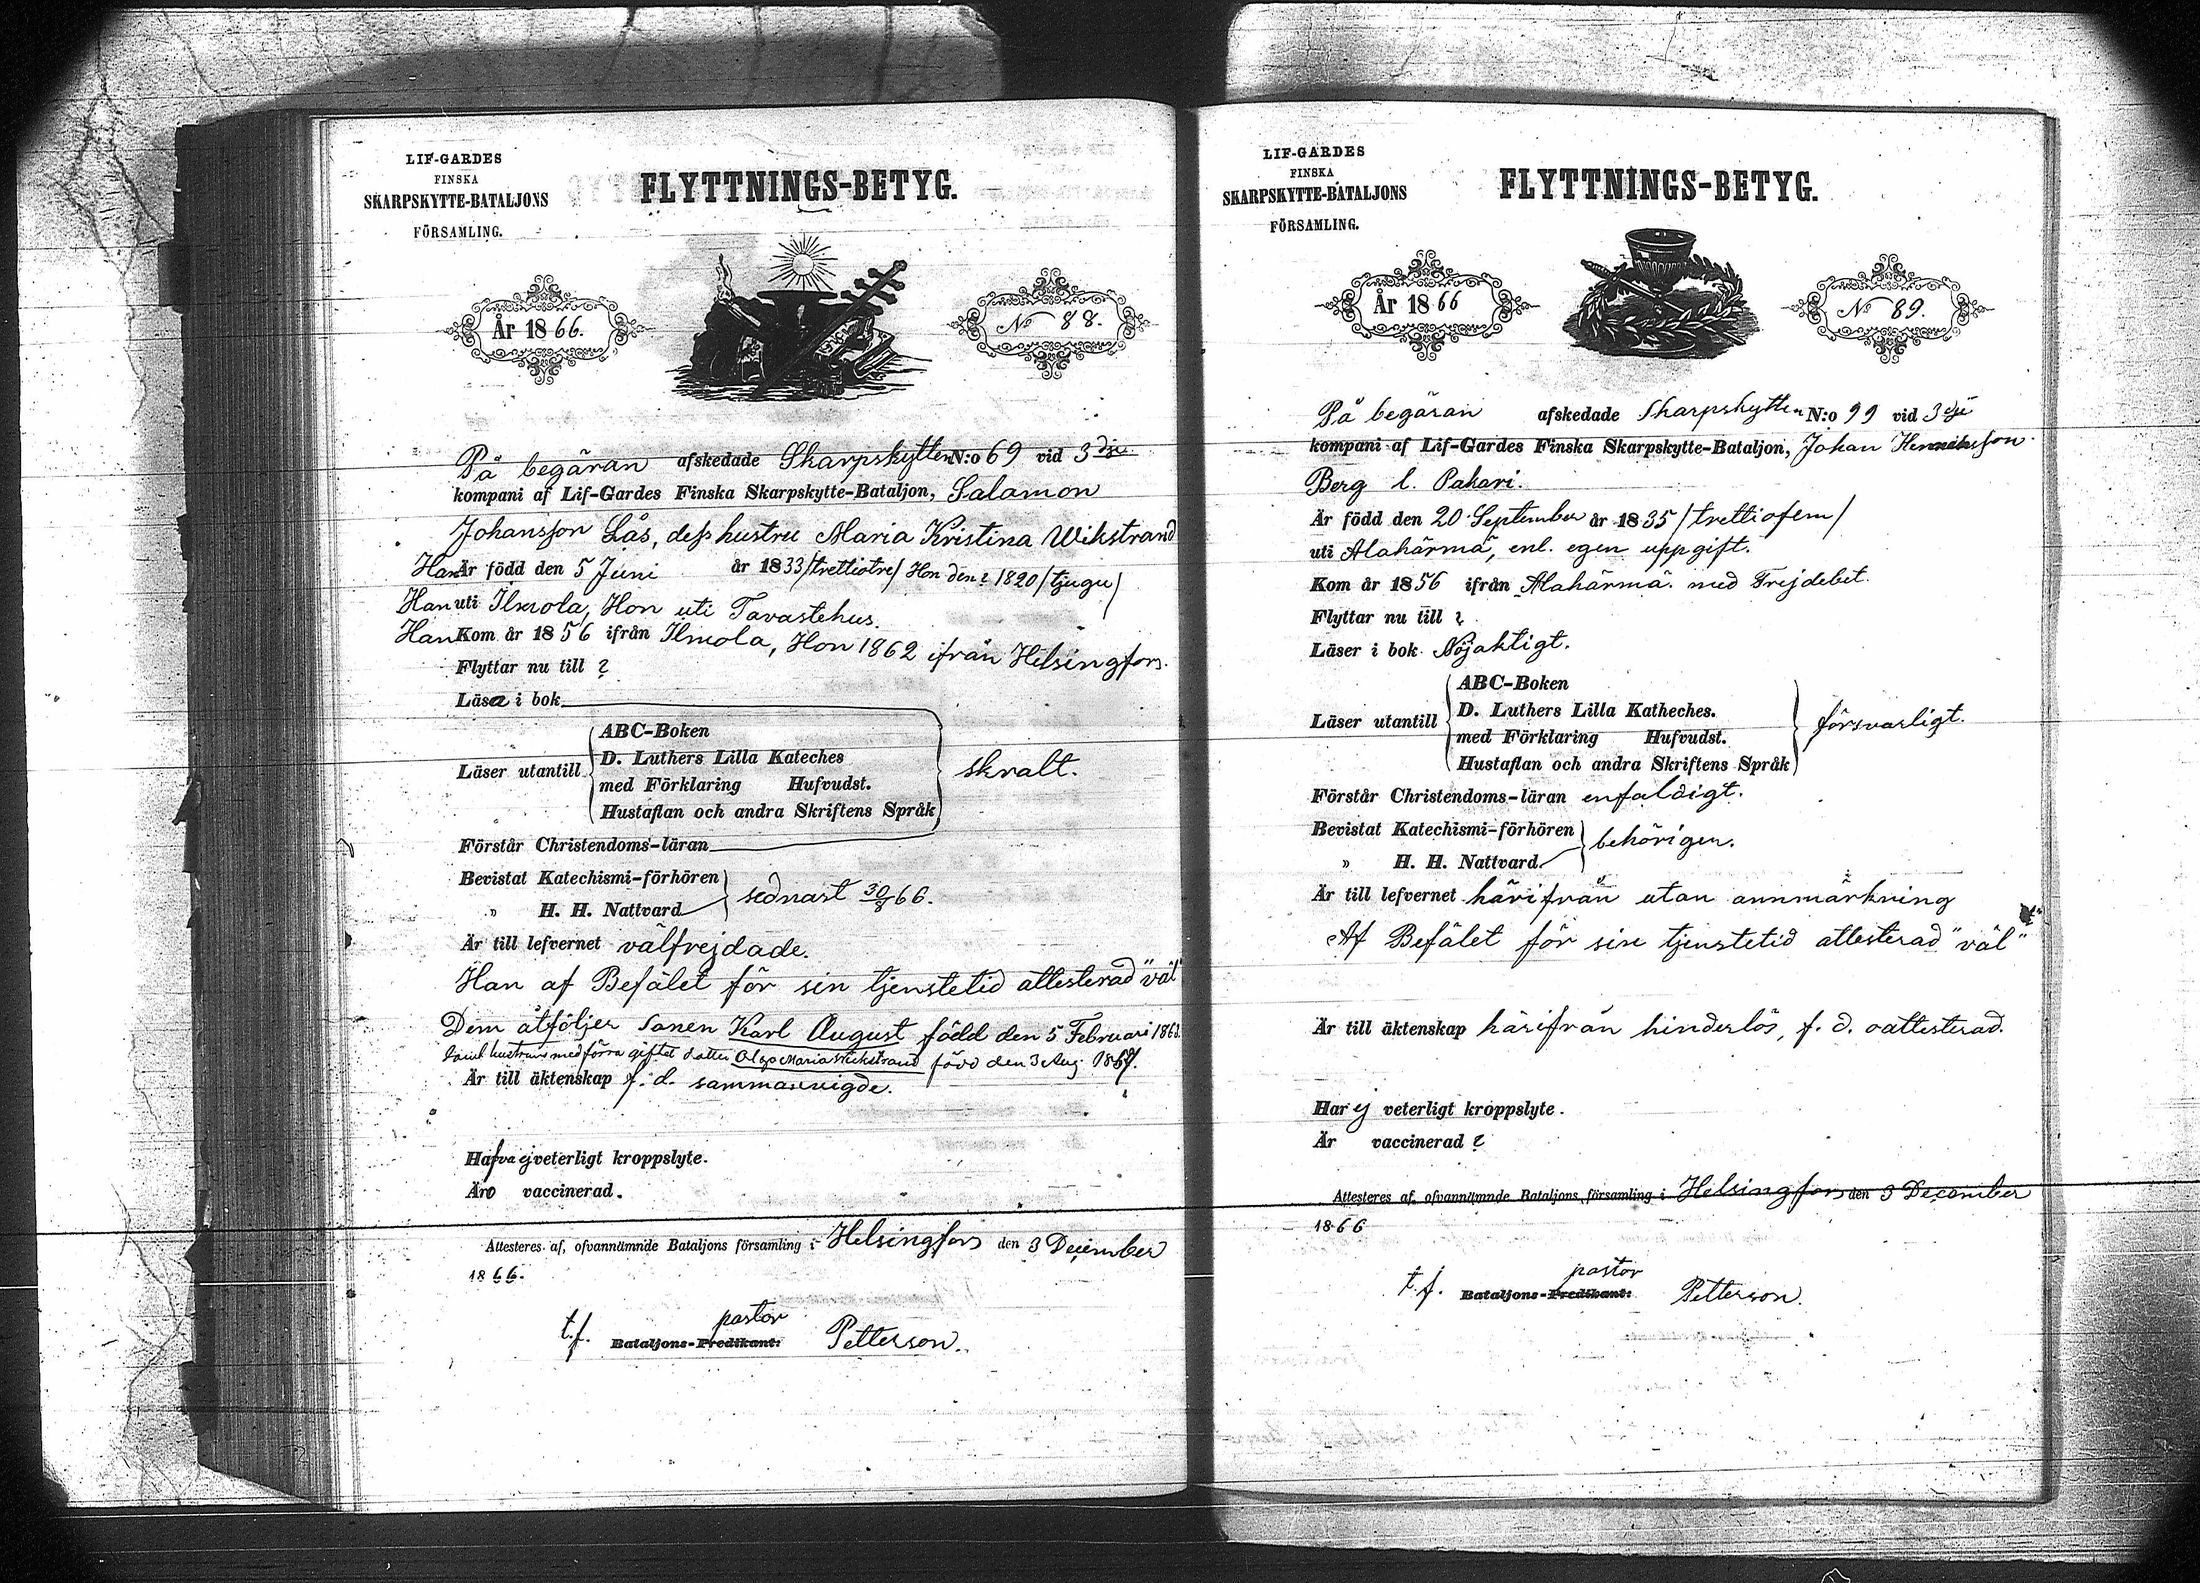 LIF-GARDES
FINSKA
SKARPSKYTTE-BATALJONS
FÖRSAMLING.
FLYTTNINGS-BETYG.
År 1866.
No 88.
På begäran afskedade Skarpskytten N:o 69 vid 3dje
kompani af Lif-Gardes Finska Skarpskytte-Bataljon, Salamon
Johansson Lås, dess hustru Maria Kristina Wikstrand
Han Är född den 5 Juni år 1833 /trettiotre/ Hon den ? 1820 /tjugu/
Han uti Ilmola, Hon uti Tavastehus.
Han Kom år 1856 ifrån Ilmola, Hon 1862 ifrån Helsingfors.
Flyttar nu till ?
Läsa i bok
Läser utantill
ABC-Boken
D. Luthers Lilla Kateches
med Förklaring Hufvudst.
Hustaflan och andra Skriftens Språk
skralt.
Förstår Christendoms-läran
Bevistat Katechismi-förhören
" H. H. Nattvard
sednast 30/8 66.
Är till lefvernet välfrejdade.
Han af Befälet för sin tjenstetid attesterad "väl"
Dem åtföljer sonen Karl August född den 5 Februari
hustruns med förra giftet dotter Olga Maria Wickstrand född den 3 Aug.
Är till äktenskap f. d. sammanvigde.
Hafva ej veterligt kroppslyte.
Äro vaccinerad.
Attesteres af, ofvannämnde Bataljons församling i Helsingfors den 3 December
1866.
t.f. Bataljons-Predikant: pastor Petterson.
LIF-GARDES
FINSKA
SKARPSKYTTE-BATALJONS
FÖRSAMLING.
FLYTTNINGS-BETYG.
År 1866
No 89.
På begäran afskedade Skarpskytten N:o 99 vid 3dje
kompani af Lif-Gardes Finska Skarpskytte-Bataljon, Johan Henriksson
Berg l. Pahari.
Är född den 20 September år 1835 /trettiofem/
uti Alahärmä, enl. egen uppgift.
Kom år 1856 ifrån Alahärmä. med Frejdebet.
Flyttar nu till ?
Läser i bok Nöjaktigt.
Läser utantill
ABC-Boken
D. Luthers Lilla Katheches.
med Förklaring Hufvudst.
Hustaflan och andra Skriftens Språk
försvarligt.
Förstår Christendoms-läran enfaldigt.
Bevistat Katechismi-förhören
" H. H. Nattvard
behörigen.
Är till lefvernet härifrån utan anmärkning
Af Befälet för sin tjenstetid attesterad "väl"
Är till äktenskap härifrån hinderlös, f. d. oattesterad.
Har ej veterligt kroppslyte.
Är vaccinerad ?
Attesteres af, ofvannämnde Bataljons församling i Helsingfors den 3 December
1866
t.f. Bataljons-Predikant: pastor Petterson.